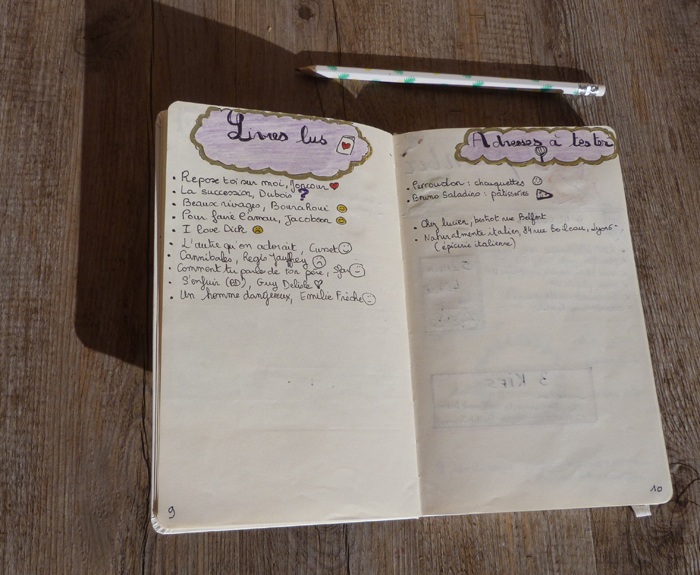 Livres lus
• Repose toi sur moi, Joncour
• La succession, Dubois ?
• Beaux rivages, Bouraoui
• Pour faire l'amour, Jacobsen
• I love Dick
• L'autre qu'on adorait, Cusset
• Cannibales, Régis Jauffrey
• Comment tu parles de ton père, Sfar
• S'enfuir (BD), Guy Delisle
• Un homme dangereux, Emilie Frèche
9
Adresses à tester
• Perroudon : chouquettes
• Bruno Saladino : pâtisseries
• Chez Lucien, bistrot rue Belfort
• Naturalmente italien, 84 rue Boileau, Lyon
(épicerie italienne)
10